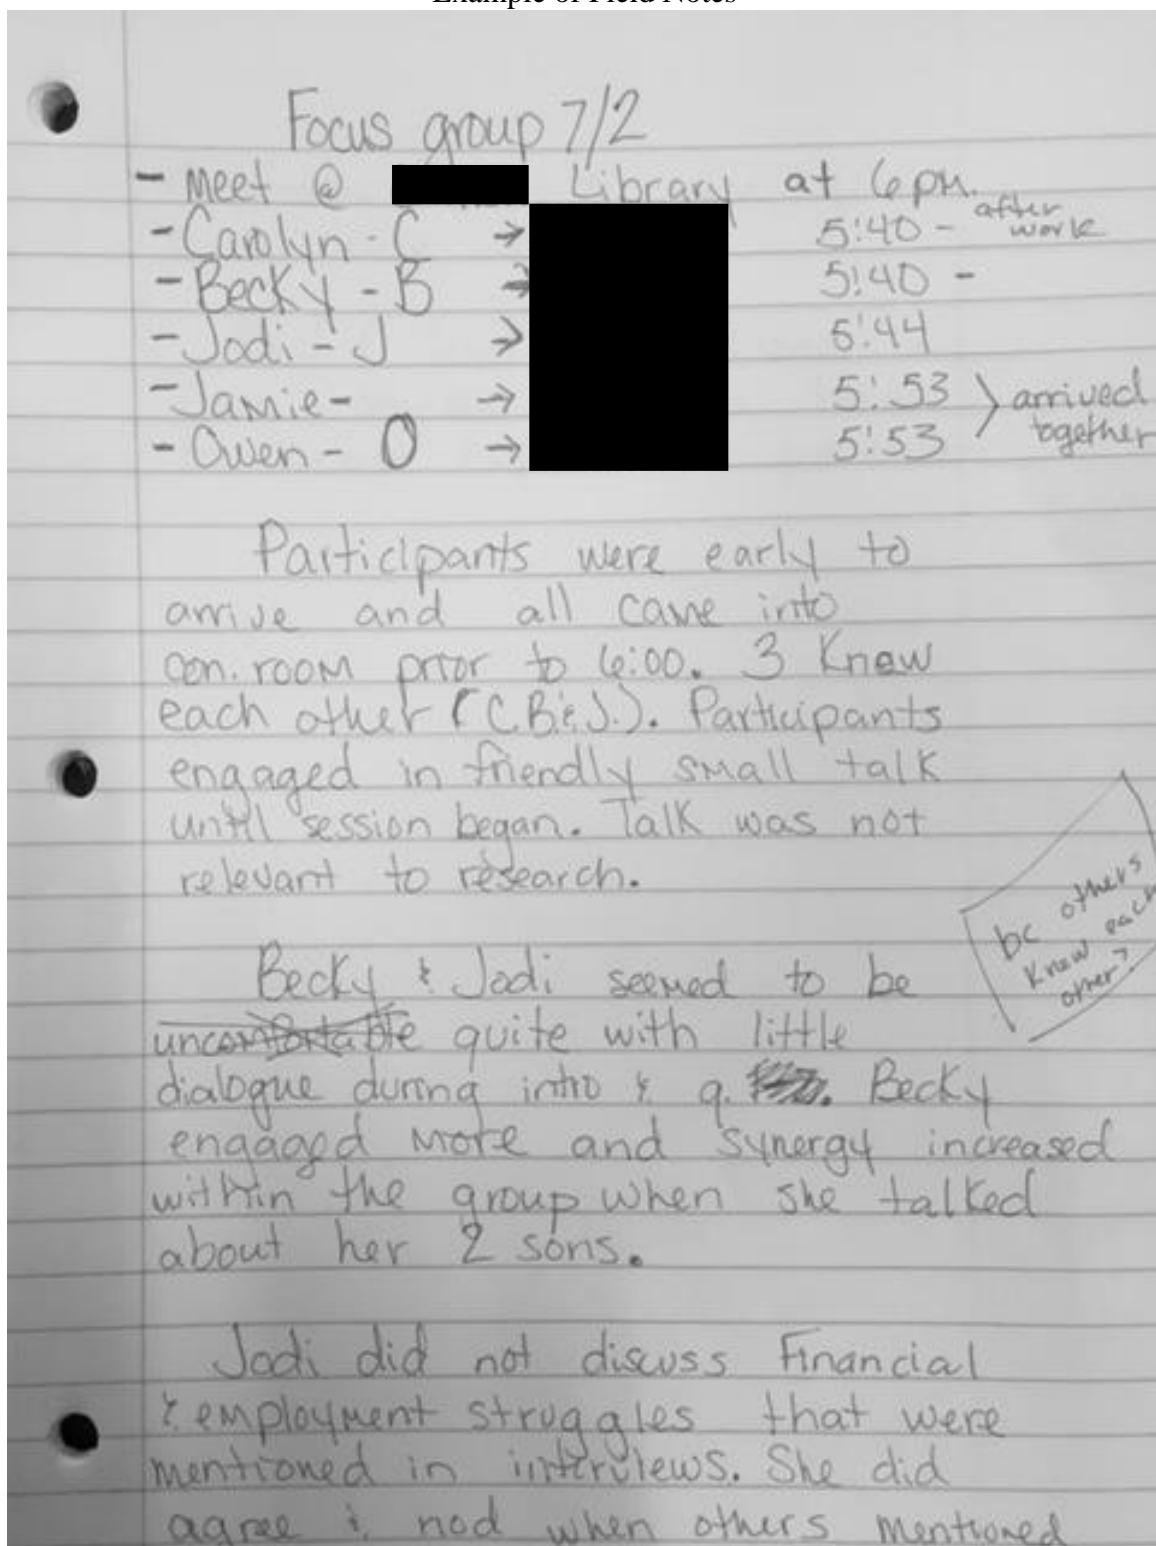 Example of Field Notes
Focus group 7/2
- Meet @ Library at 6pm.
- Carolyn - C → 5:40 - after work
- Becky - B → 5:40 -
- Jodi - J → 5:44
- Jamie - → 5:53 > arrived together
- Owen - O → 5:53
Participants were early to
arrive and all came into
con. room prior to 6:00. 3 Knew
each other (C.B.&J.). Participants
engaged in friendly small talk
until session began. Talk was not
relevant to research.
bc others
knew each
other?
Becky & Jodi seemed to be
uncomfortable quite with little
dialogue during intro & q. Becky
engaged more and synergy increased
within the group when she talked
about her 2 sons.
Jodi did not discuss Financial
& employment struggles that were
mentioned in interviews. She did
agree & nod when others mentioned